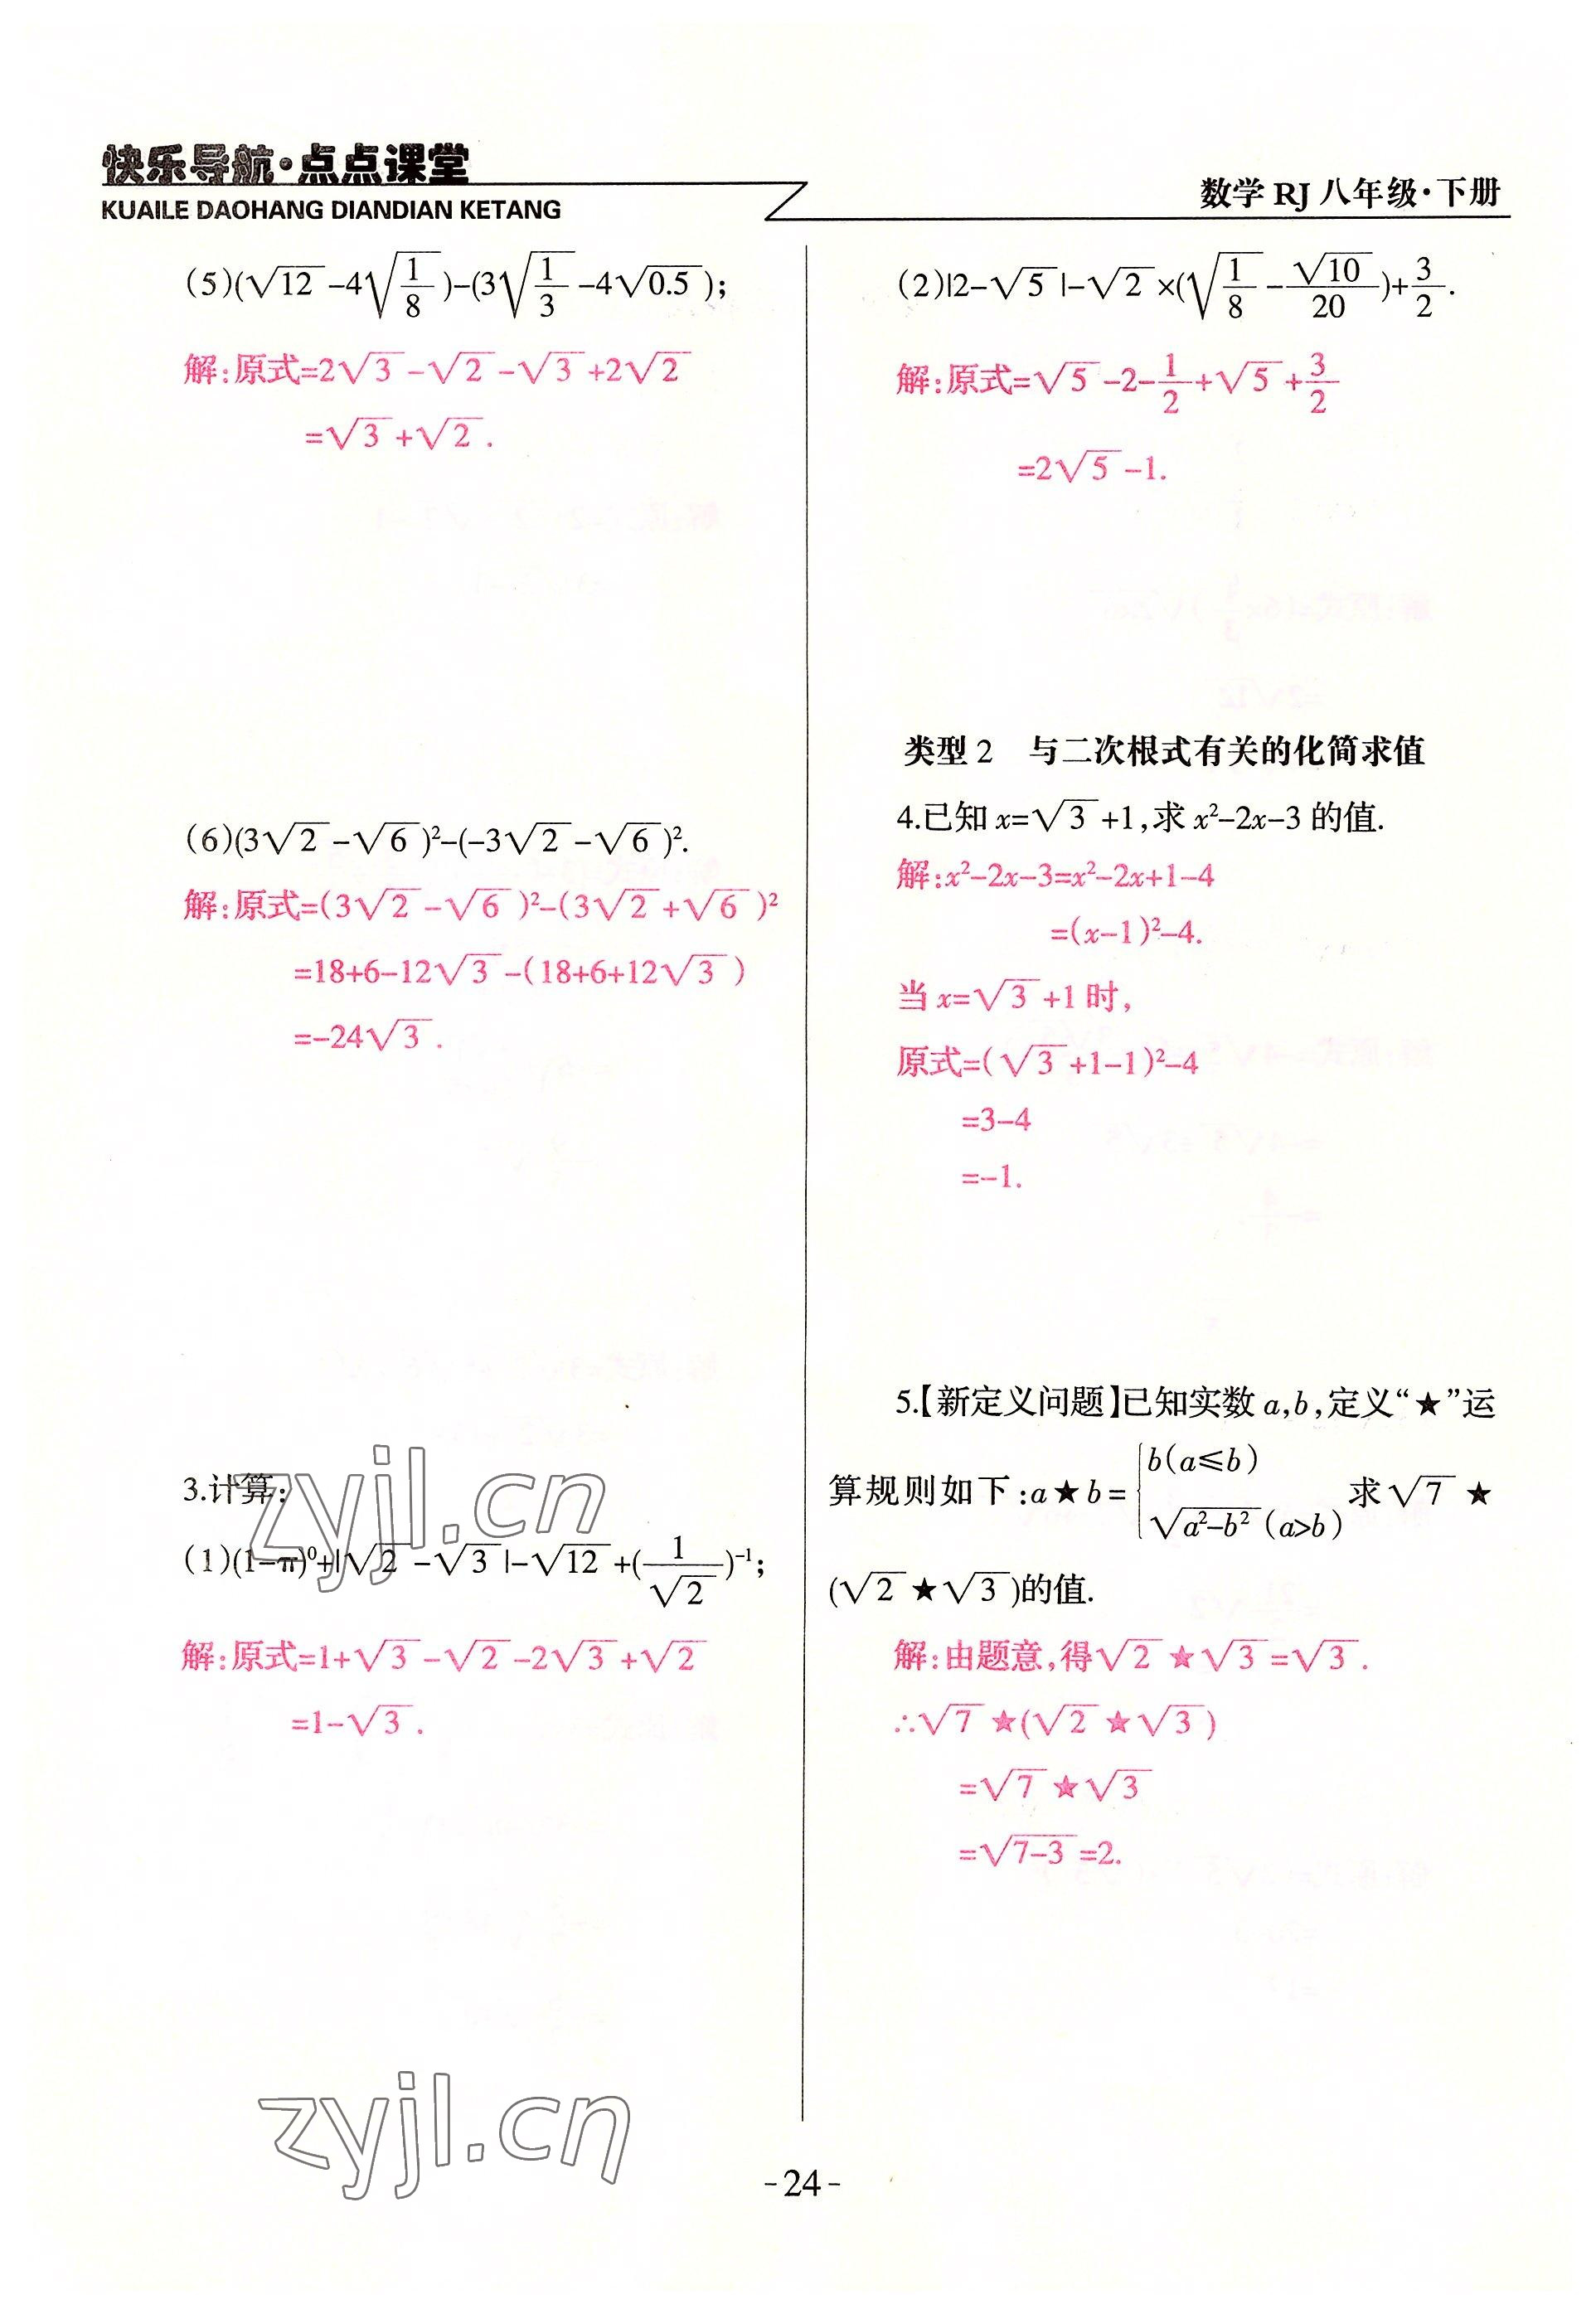 快乐导航·点点课堂
KUAILE DAOHANG DIANDIAN KETANG
数学 RJ 八年级·下册
(5)(√12-4√(1/8))-(3√(1/3)-4√0.5);
解:原式=2√3-√2-√3+2√2
=√3+√2.
(6)(3√2-√6)²-(-3√2-√6)².
解:原式=(3√2-√6)²-(3√2+√6)²
=18+6-12√3-(18+6+12√3)
=-24√3.
3.计算:
(1)(1-π)⁰+|√2-√3|-√12+(1/√2)⁻¹;
解:原式=1+√3-√2-2√3+√2
=1-√3.
(2)|2-√5|-√2×(√(1/8)-√10/20)+3/2.
解:原式=√5-2-1/2+√5+3/2
=2√5-1.
类型 2 与二次根式有关的化简求值
4.已知 x=√3+1,求 x²-2x-3 的值.
解:x²-2x-3=x²-2x+1-4
=(x-1)²-4.
当 x=√3+1 时,
原式=(√3+1-1)²-4
=3-4
=-1.
5.【新定义问题】已知实数 a,b,定义“★”运
算规则如下:a★b={b(a≤b) √(a²-b²)(a>b) 求√7★
(√2★√3)的值.
解:由题意,得√2★√3=√3.
∴√7★(√2★√3)
=√7★√3
=√(7-3)=2.
zyjl.cn
zyjl.cn
-24-